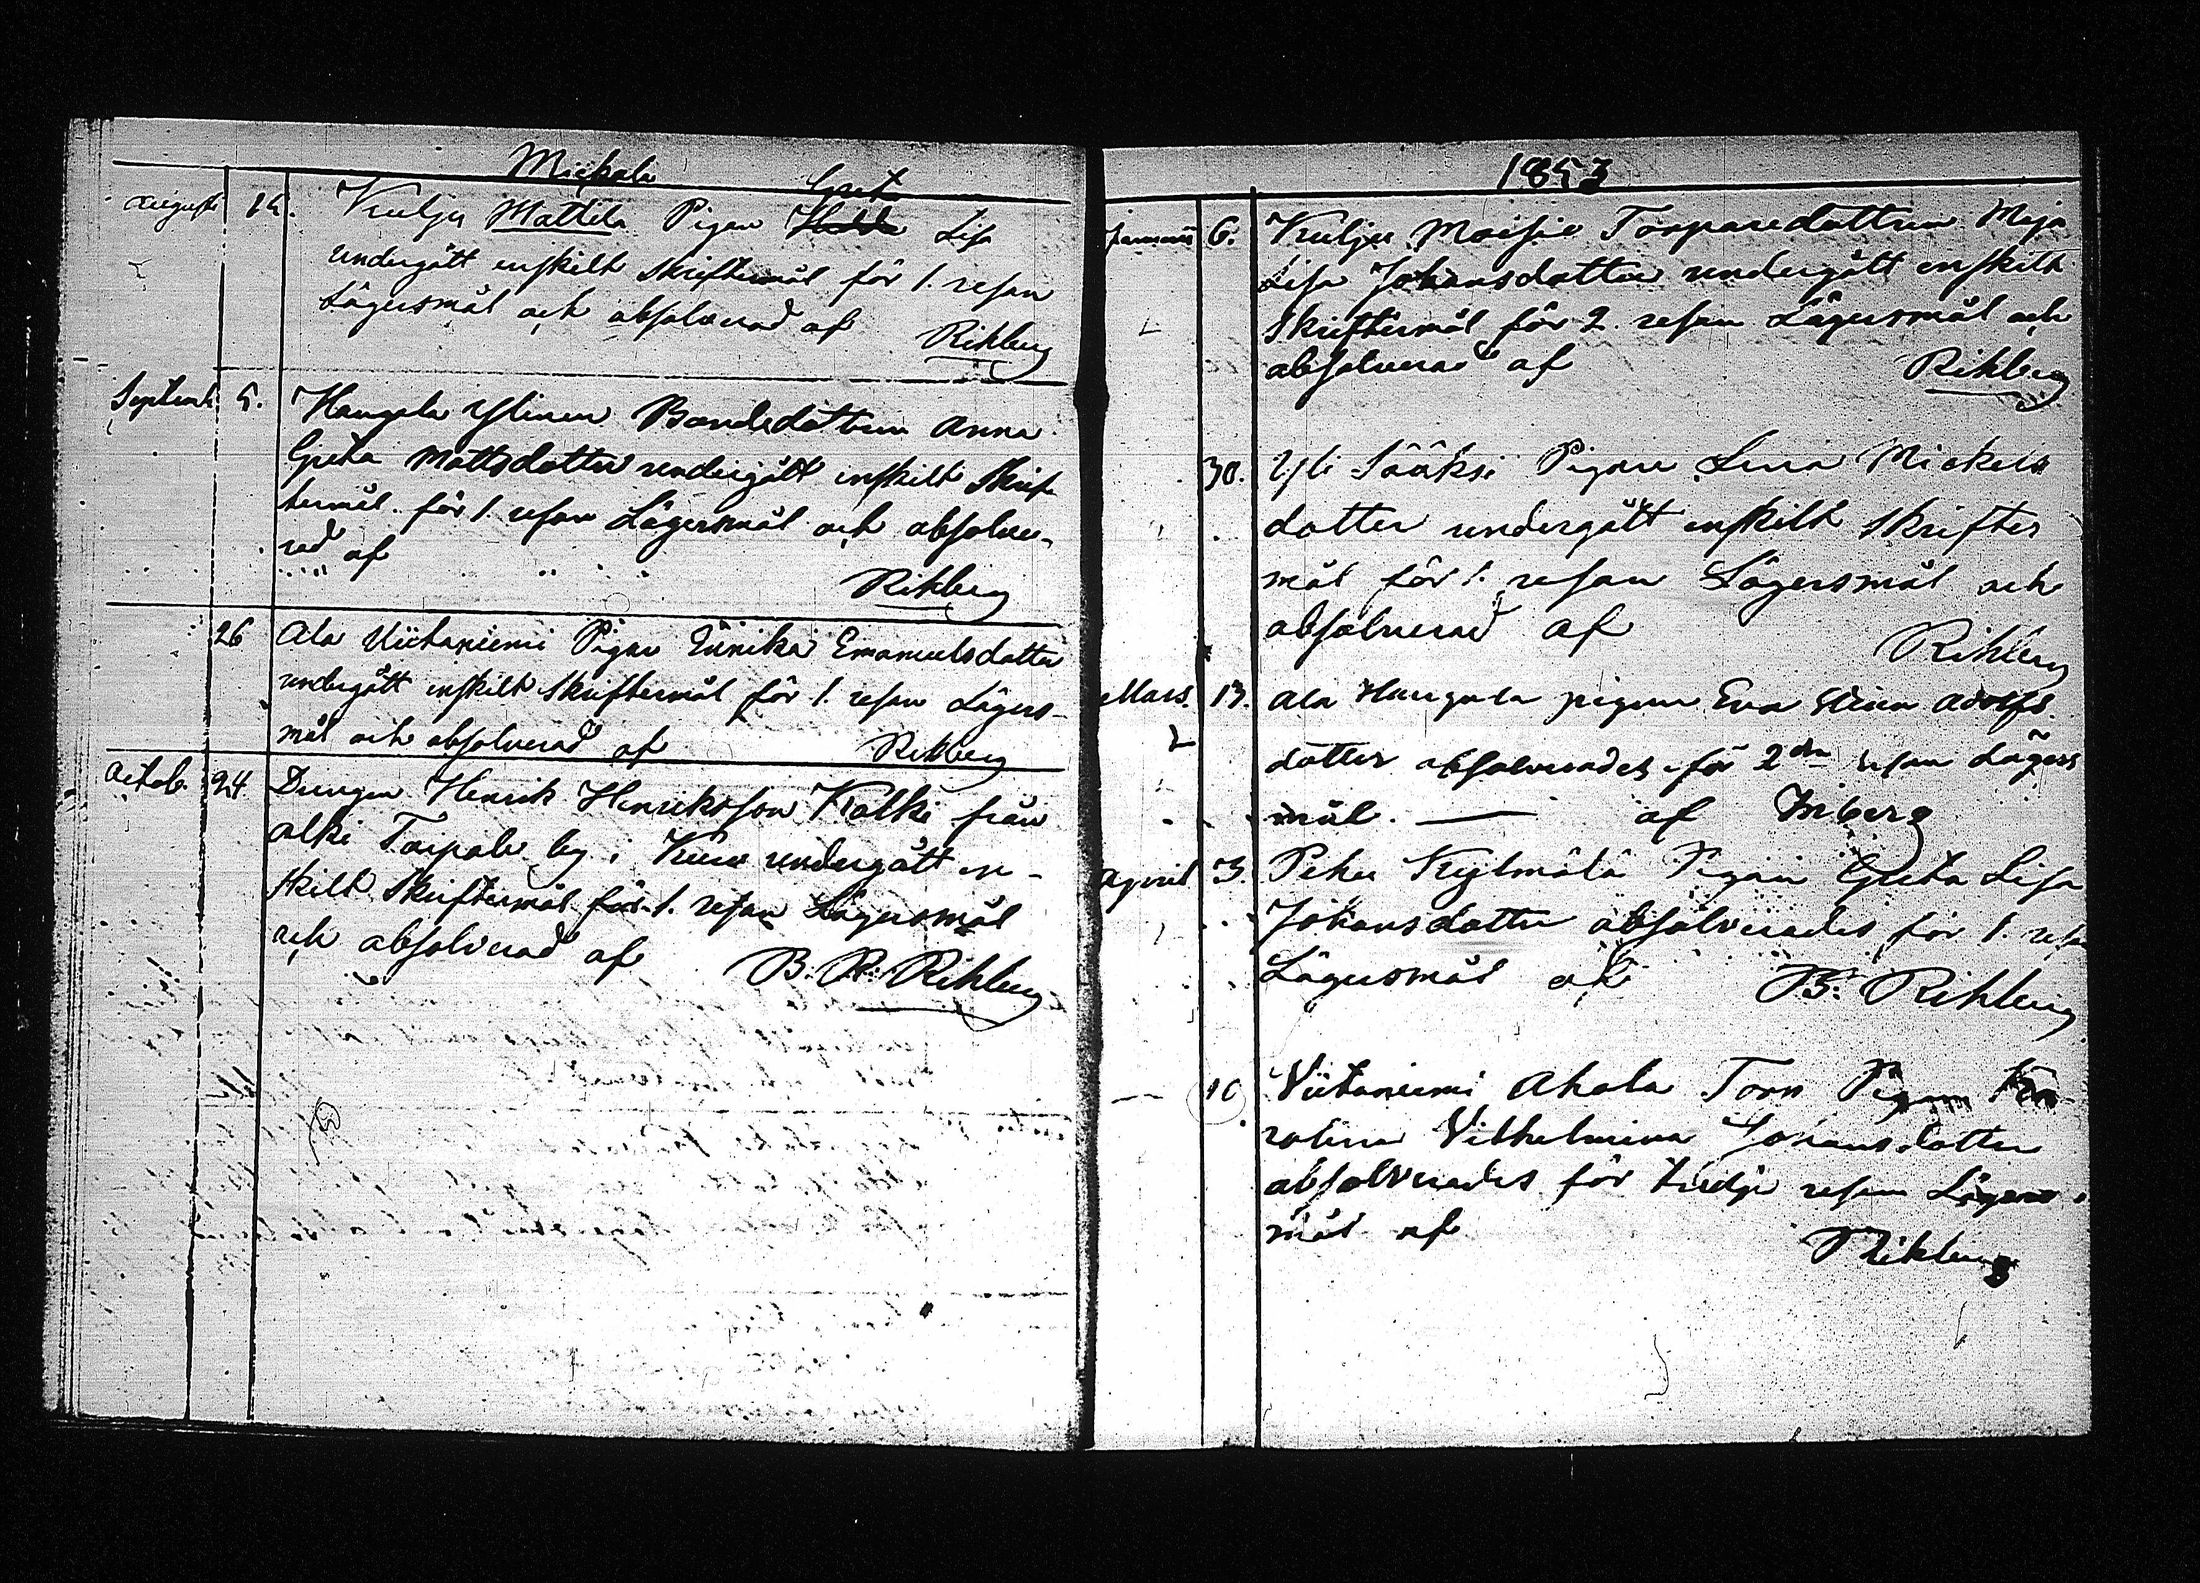 Mickola
Augusti 15. Kulju Mattila Pigan Greta Lisa
undergått enskilt skriftermål för 1. resan
Lägersmål och absolverad af Rihberg
Septemb 5. Haugala Ylinen Bondedottren Anna
Greta Mattsdotter undergått enskilt Skrif-
termål för 1. resan Lägersmål och absolve-
rad af
Rihberg
26 Ala Viitaniemi Pigan Eünika Emanuelsdotter
undergått enskilt Skriftermål för 1. resan Lägers-
mål och absolverad af Rihberg
Octob. 24 Drengen Henrik Henriksson Kolki från
Alki Taipale by i Kuru undergått en-
skilt Skriftermål för 1. resan Lägersmål
och absolverad af B. R. Rihberg
1853
Januarii 6. Kulju Moisio Torparedottren Maja
Lisa Johansdotter undergått enskilt
Skriftermål för 2. resan Lägersmål och
absolverad af Rihberg
30. Yli Sääksi Pigan Lena Mickels
dotter undergått enskilt skrifter
mål för 1. resan Lägersmål och
absolverad af
Rihberg
Mars. 13. Ala Haugala pigan Eva Stina Adolfs
dotter absolverades för 2dra resan Lägers
mål. — af Inberg
April 3. Pehu Kylmälä Pigan Greta Lisa
Johansdotter absolverades för 1. resan
Lägersmål af B. Rihberg
10 Viitaniemi Ahola Torp Pigan Ka
rolina Vilhelmina Johansdotter
absolverades för tredje resan Lägers-
mål af
Rihberg